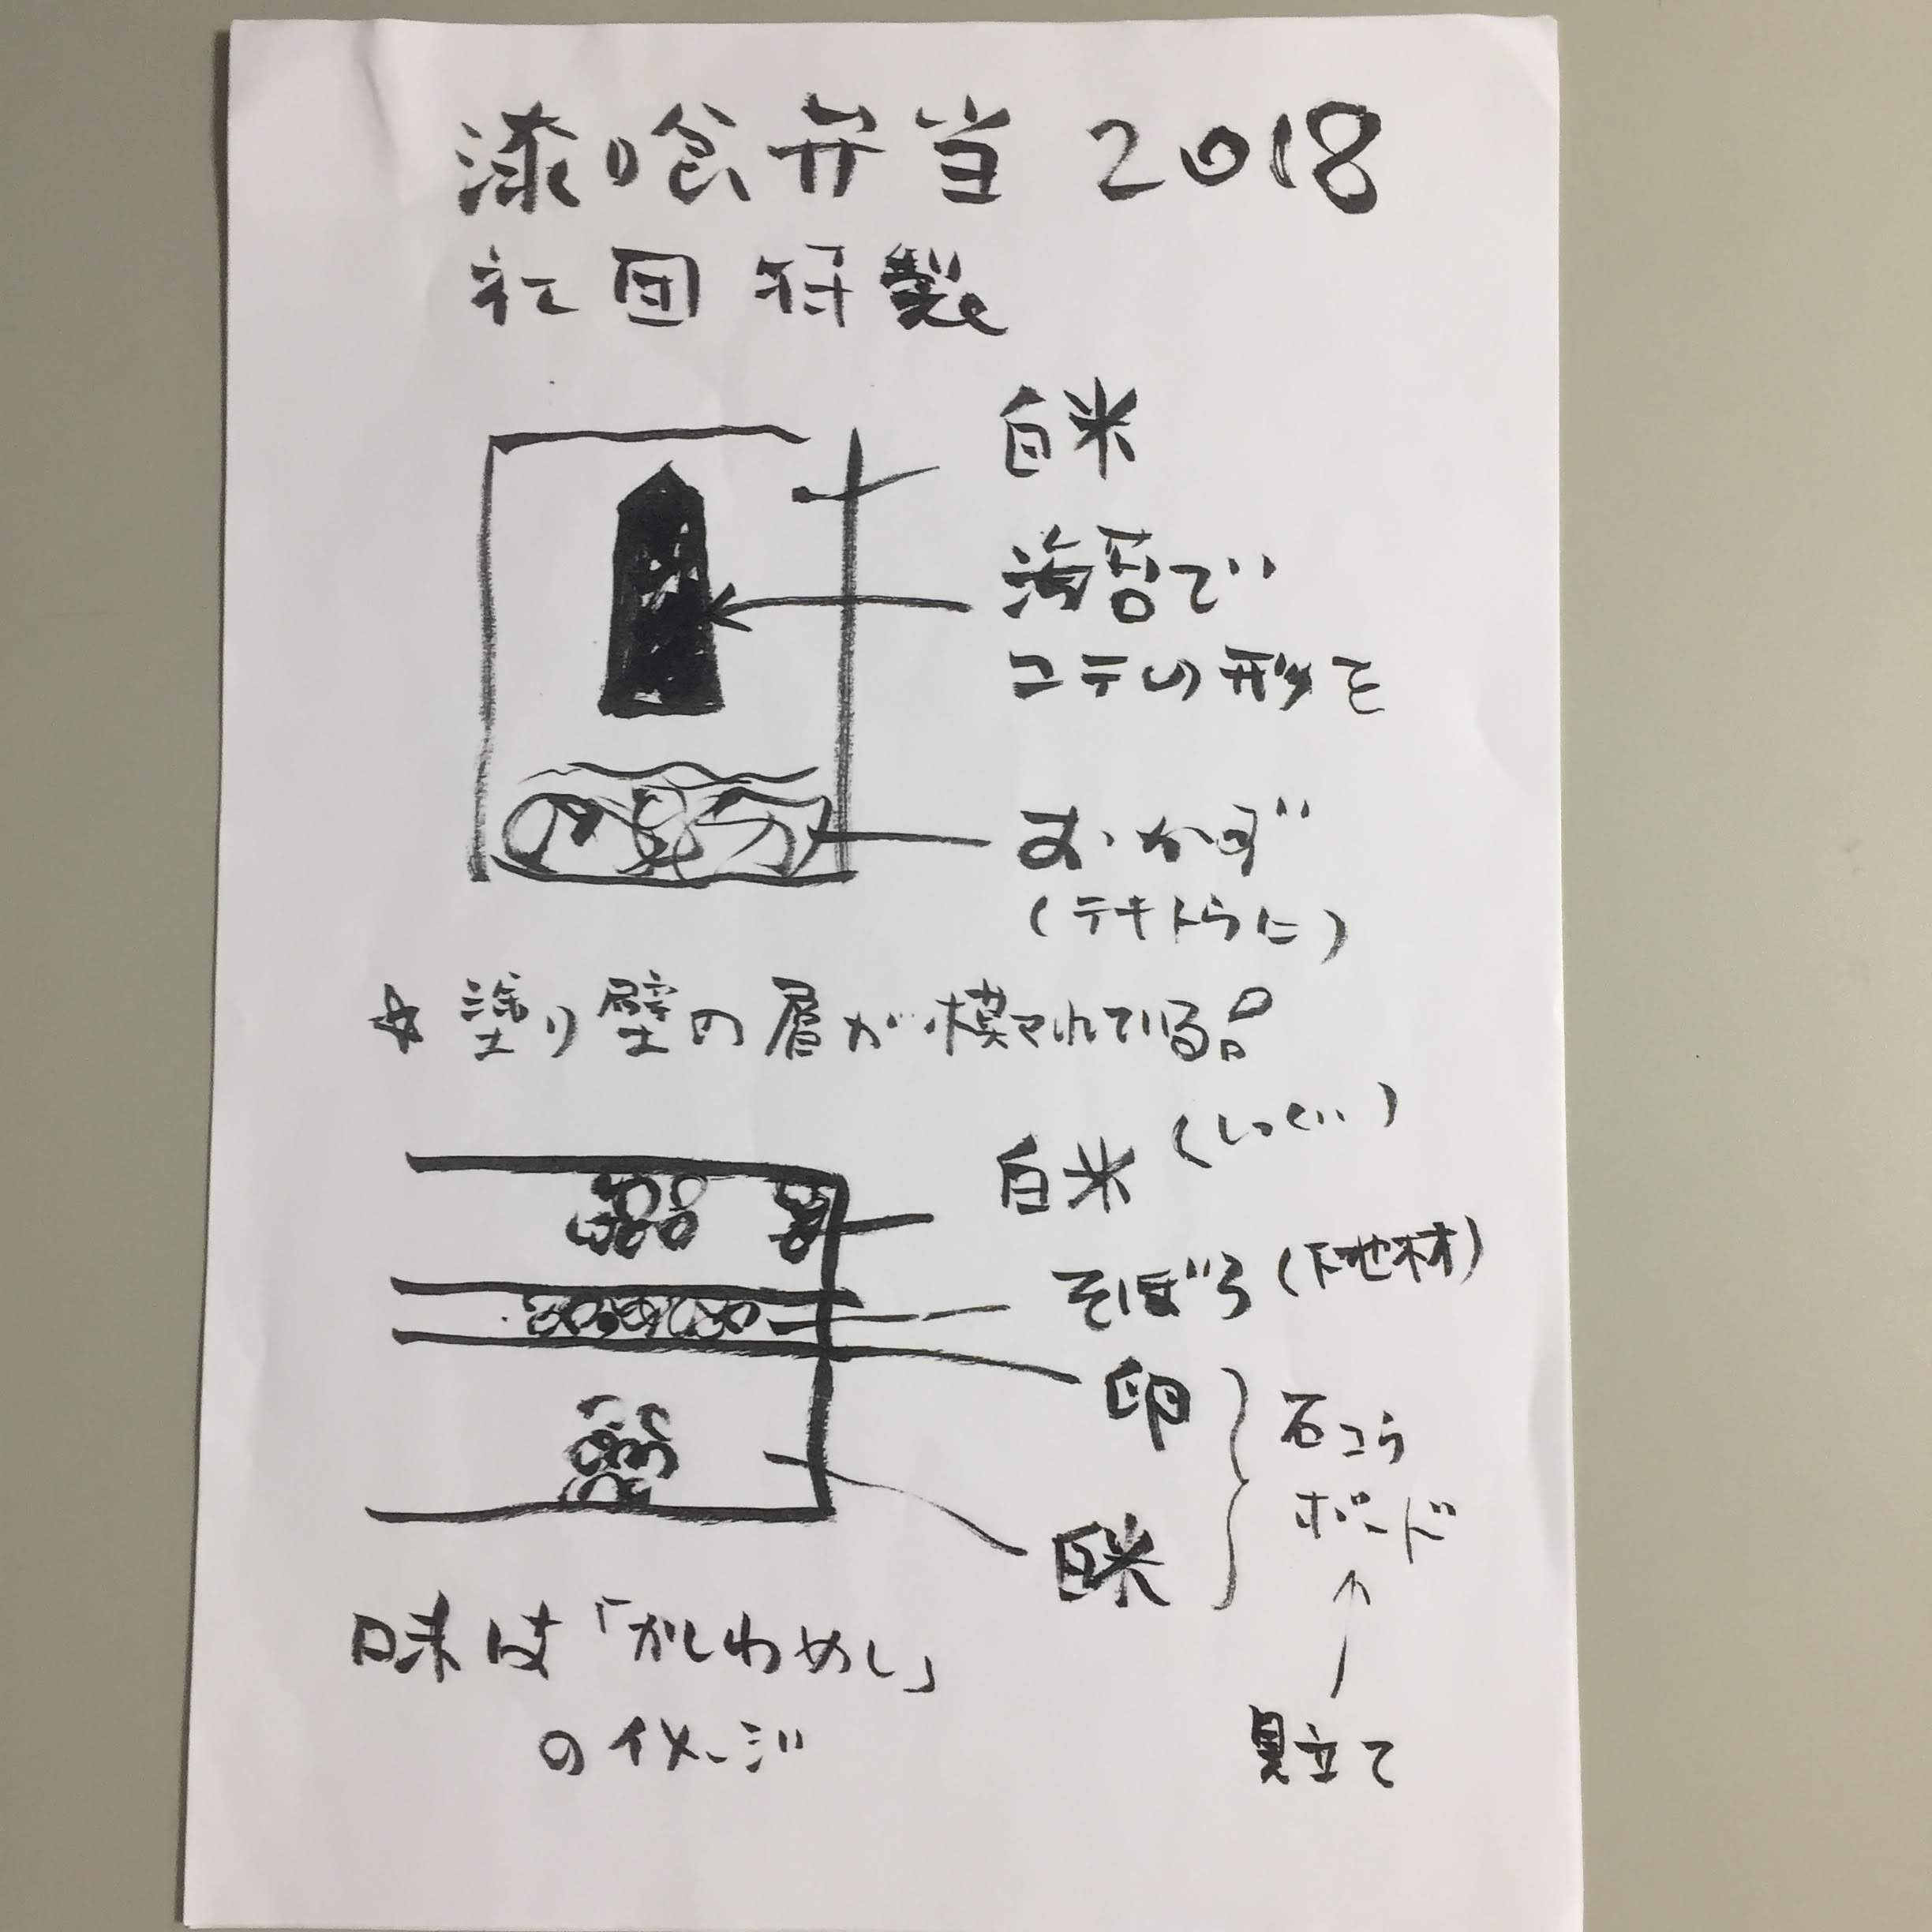 漆喰弁当 2018
社団特製
白米
海苔で
コテの形を
おかず
(テキトウに)
☆ 塗り壁の層が模されている!!
白米 (しっくい)
そぼろ (下地材)
卵
石こう
ボード
白米
味は「かしわめし」
のイメージ
見立て